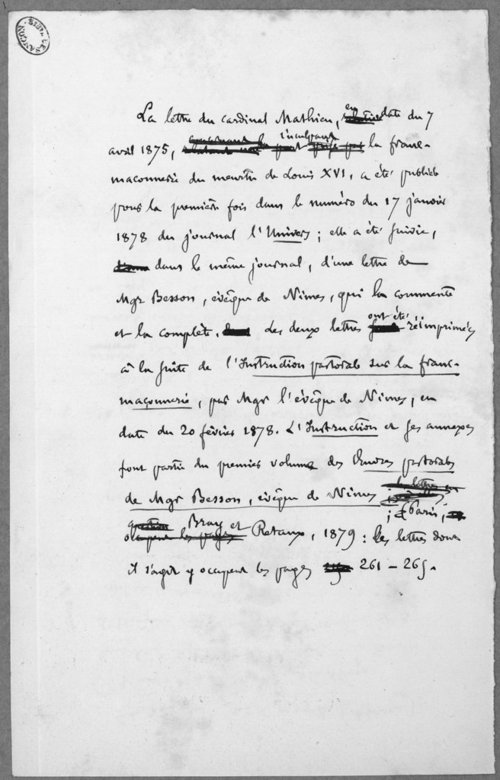 La lettre du cardinal Mathieu, en date du 7
avril 1875, inculpant la franc-
maçonnerie du meurtre de Louis XVI, a été publiée
pour la première fois dans le numéro du 17 janvier
1878 du journal l'Univers ; elle a été suivie,
dans le même journal, d'une lettre de
Mgr Besson, évêque de Nimes, qui la commente
et la complète. Les deux lettres ont été réimprimées
à la suite de l'Instruction pastorale sur la franc-
maçonnerie, par Mgr l'évêque de Nimes, en
date du 20 février 1878. L'Instruction et ses annexes
font partie du premier volume des Œuvres pastorales
de Mgr Besson, évêque de Nimes
; (Paris,
Bray et Retaux, 1879 : les lettres dont
il s'agit y occupent les pages 261 – 265.